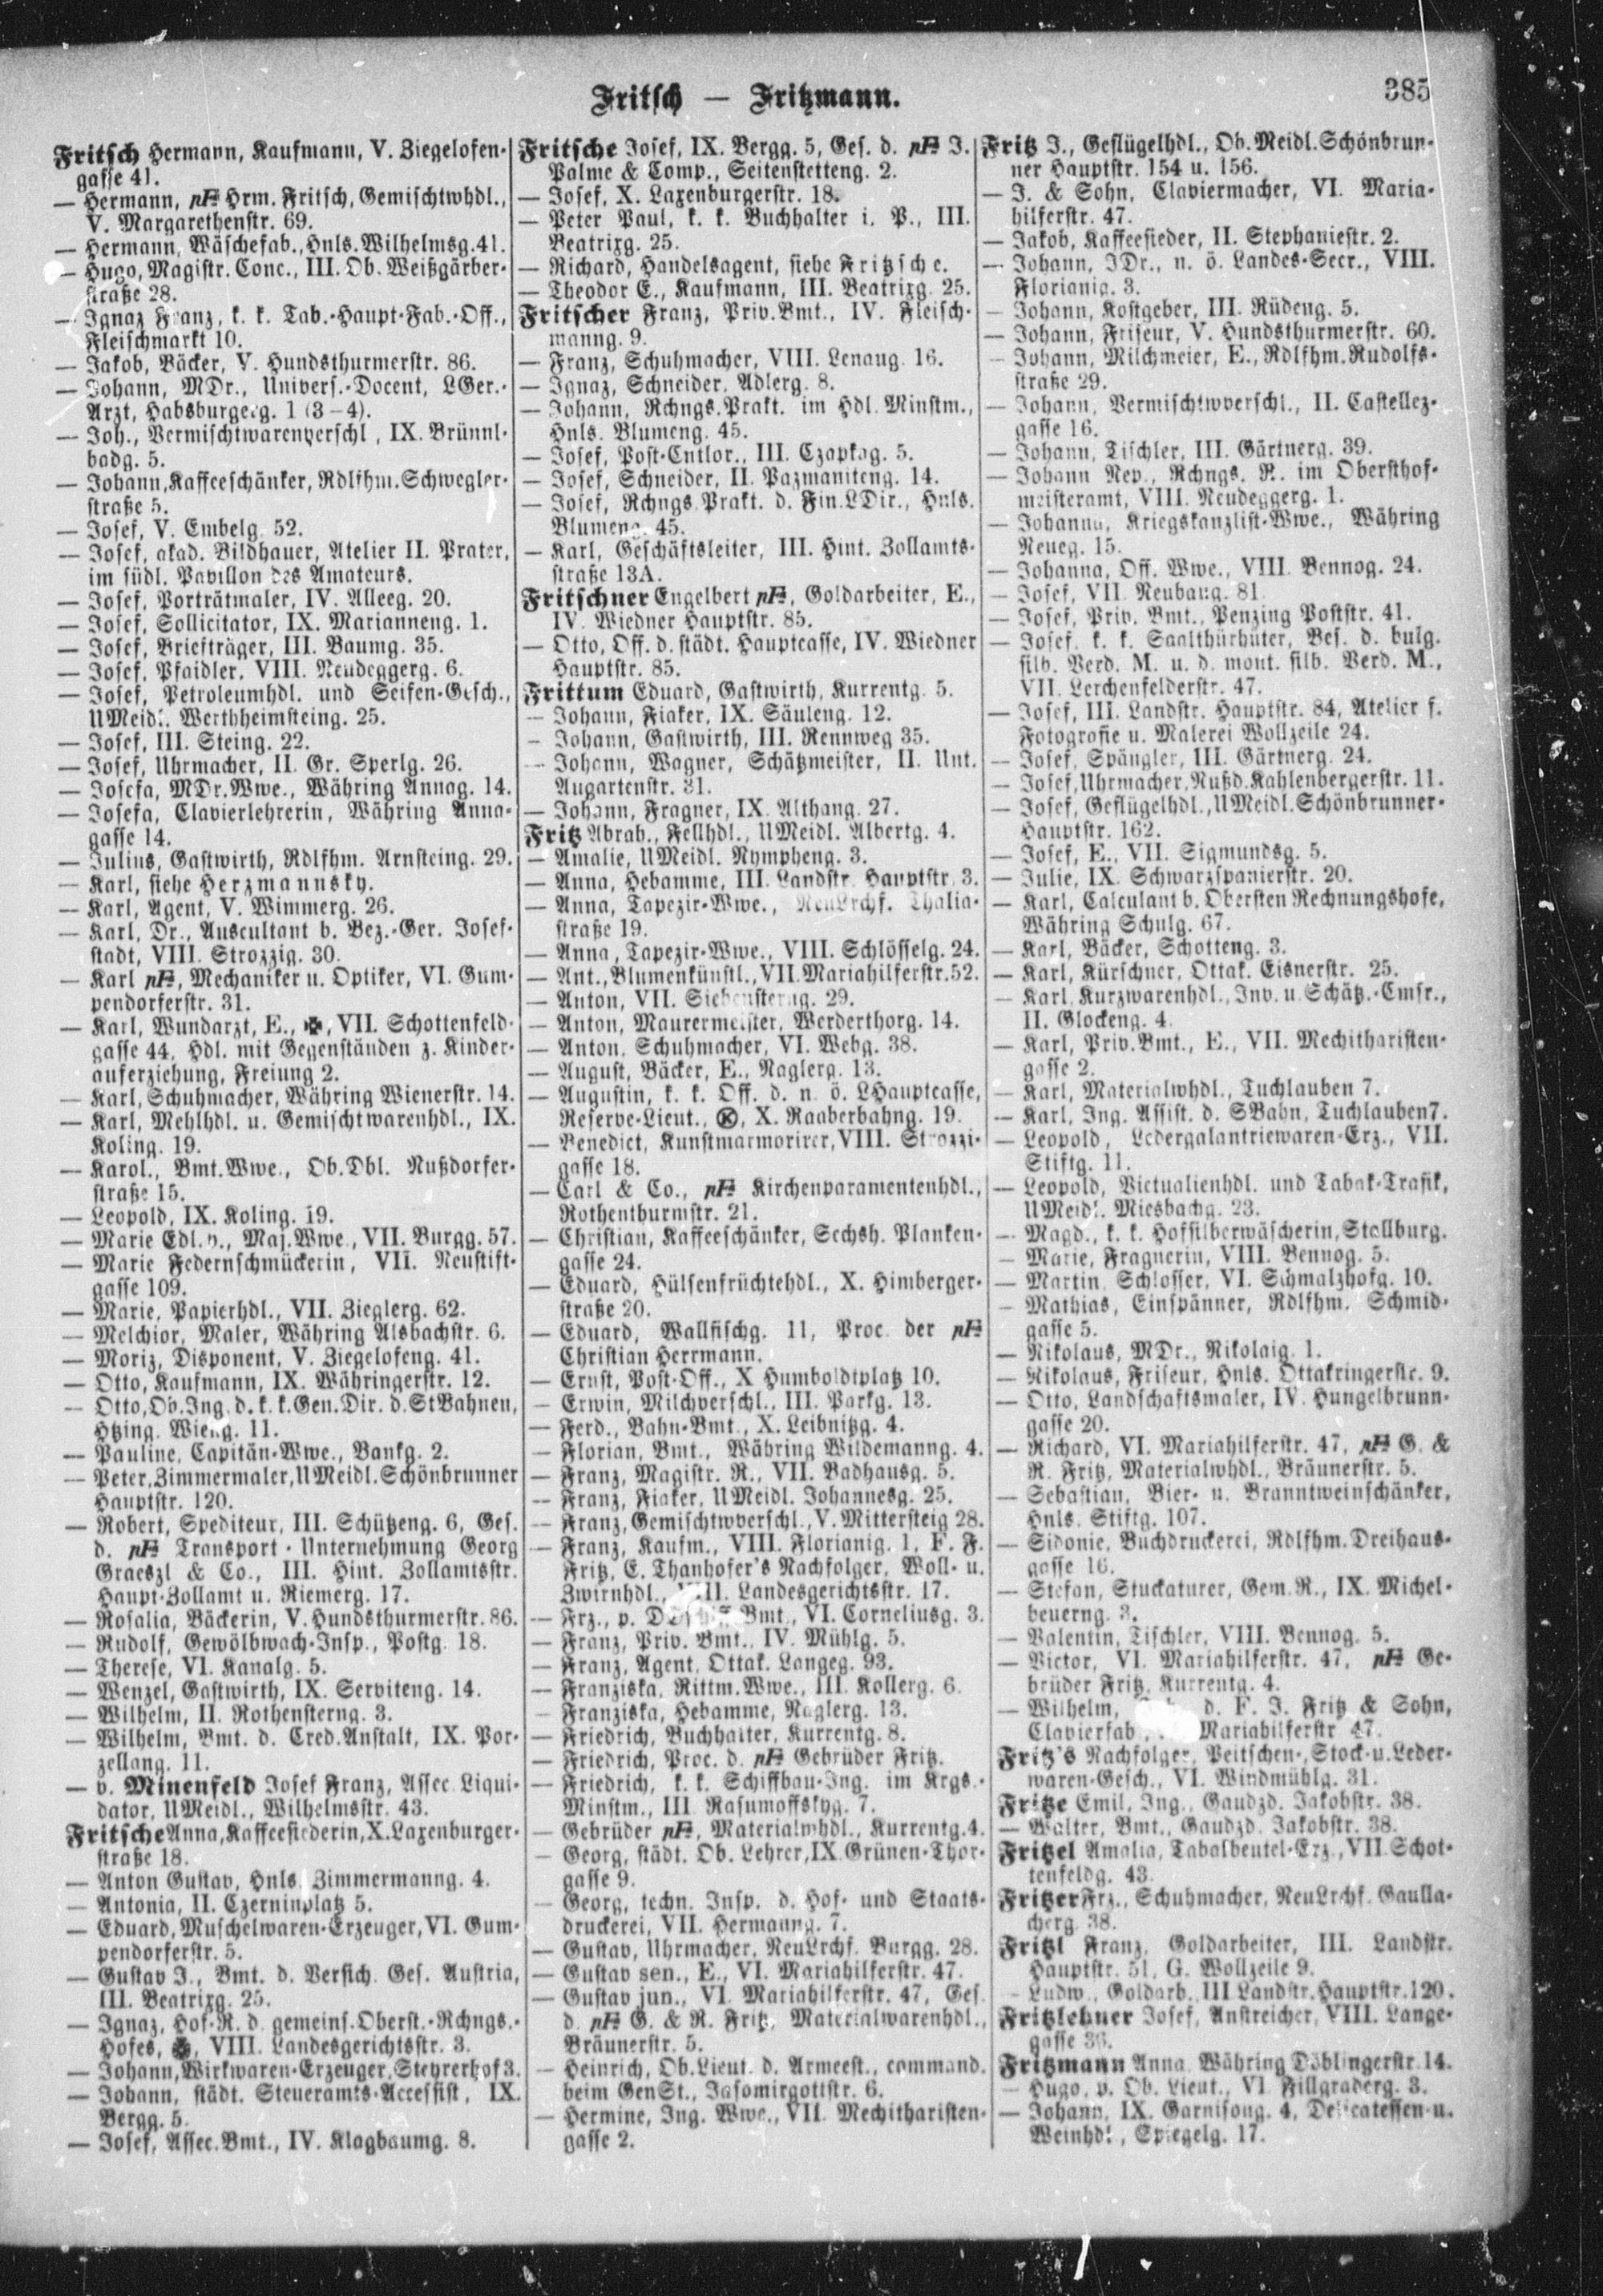 Fritsch — Fritzmann.
385
Fritsch Hermann, Kaufmann, V. Ziegelofen-
gasse 41.
— Hermann, pF Hrm. Fritsch, Gemischtwhdl.,
V. Margarethenstr. 69.
— Hermann, Wäschefab., Hnls. Wilhelmsg. 41.
— Hugo, Magistr. Conc., III. Ob. Weißgärber-
straße 28.
— Ignaz Franz, k. k. Tab.-Haupt-Fab.-Off.,
Fleischmarkt 10.
— Jakob, Bäcker, V. Hundsthurmerstr. 86.
— Johann, MDr., Univers.-Docent, LGer.-
Arzt, Habsburgerg. 1 (3–4).
— Joh., Vermischtwarenverschl, IX. Brünnl-
badg. 5.
— Johann, Kaffeeschänker, Rdlfhm. Schwegler-
straße 5.
— Josef, V. Embelg. 52.
— Josef, akad. Bildhauer, Atelier II. Prater,
im südl. Pavillon des Amateurs.
— Josef, Porträtmaler, IV. Alleeg. 20.
— Josef, Sollicitator, IX. Marianneng. 1.
— Josef, Briefträger, III. Baumg. 35.
— Josef, Pfaidler, VIII. Neudeggerg. 6.
— Josef, Petroleumhdl. und Seifen-Gesch.,
UMeidl. Wertheimsteing. 25.
— Josef, III. Steing. 22.
— Josef, Uhrmacher, II. Gr. Sperlg. 26.
— Josefa, MDr. Wwe., Währing Annag. 14.
— Josefa, Clavierlehrerin, Währing Anna-
gasse 14.
— Julius, Gastwirth, Rdlfhm. Arnsteing. 29.
— Karl, siehe Herzmannsky.
— Karl, Agent, V. Wimmerg. 26.
— Karl, Dr., Auscultant b. Bez.-Ger. Josef-
stadt, VIII. Strozzig. 30.
— Karl pF, Mechaniker u. Optiker, VI. Gum-
pendorferstr. 31.
— Karl, Wundarzt, E., ✠, VII. Schottenfeld-
gasse 44, Hdl. mit Gegenständen z. Kinder-
auferziehung, Freiung 2.
— Karl, Schuhmacher, Währing Wienerstr. 14.
— Karl, Mehlhdl. u. Gemischtwarenhdl., IX.
Koling. 19.
— Karol., Bmt. Wwe., Ob. Dbl. Nußdorfer-
straße 15.
— Leopold, IX. Koling. 19.
— Marie Edl. v., Maj. Wwe., VII. Burgg. 57.
— Marie Federnschmückerin, VII. Neustift-
gasse 109.
— Marie, Papierhdl., VII. Zieglerg. 62.
— Melchior, Maler, Währing Alsbachstr. 6.
— Moriz, Disponent, V. Ziegelofeng. 41.
— Otto, Kaufmann, IX. Währingerstr. 12.
— Otto, Ob. Ing. d. k. k. Gen. Dir. d. StBahnen,
Htzing. Wieng. 11.
— Pauline, Capitän-Wwe., Bankg. 2.
— Peter, Zimmermaler, UMeidl. Schönbrunner
Hauptstr. 120.
— Robert, Spediteur, III. Schützeng. 6, Ges.
d. pF Transport-Unternehmung Georg
Graeszl & Co., III. Hint. Zollamtsstr.
Haupt-Zollamt u. Riemerg. 17.
— Rosalia, Bäckerin, V. Hundsthurmerstr. 86.
— Rudolf, Gewölbwach-Insp., Postg. 18.
— Therese, VI. Kanalg. 5.
— Wenzel, Gastwirth, IX. Serviteng. 14.
— Wilhelm, II. Rothensterng. 3.
— Wilhelm, Bmt. d. Cred. Anstalt, IX. Por-
zellang. 11.
— v. Minenfeld Josef Franz, Assec. Liqui-
dator, UMeidl., Wilhelmsstr. 43.
Fritsche Anna, Kaffeesiederin, X. Laxenburger-
straße 18.
— Anton Gustav, Hnls. Zimmermanng. 4.
— Antonia, II. Czerninplatz 5.
— Eduard, Muschelwaren-Erzeuger, VI. Gum-
pendorferstr. 5.
— Gustav J., Bmt. d. Versich. Ges. Austria,
III. Beatrixg. 25.
— Ignaz, Hof-R. d. gemeins. Oberst.-Rchngs.-
Hofes, ✠, VIII. Landesgerichtsstr. 3.
— Johann, Wirkwaren-Erzeuger, Steyrerhof 3.
— Johann, städt. Steueramts-Accessist, IX.
Bergg. 5.
— Josef, Assec. Bmt., IV. Klagbaumg. 8.
Fritsche Josef, IX. Bergg. 5, Ges. d. pF J.
Palme & Comp., Seitenstetteng. 2.
— Josef, X. Laxenburgerstr. 18.
— Peter Paul, k. k. Buchhalter i. P., III.
Beatrixg. 25.
— Richard, Handelsagent, siehe Fritzsche.
— Theodor E., Kaufmann, III. Beatrixg. 25.
Fritscher Franz, Priv. Bmt., IV. Fleisch-
manng. 9.
— Franz, Schuhmacher, VIII. Lenaug. 16.
— Ignaz, Schneider, Adlerg. 8.
— Johann, Rchngs. Prakt. im Hdl. Minstm.,
Hnls. Blumeng. 45.
— Josef, Post-Cntlor., III. Czapkag. 5.
— Josef, Schneider, II. Pazmaniteng. 14.
— Josef, Rchngs. Prakt. d. Fin. LDir., Hnls.
Blumeng. 45.
— Karl, Geschäftsleiter, III. Hint. Zollamts-
straße 13A.
Fritschner Engelbert pF, Goldarbeiter, E.,
IV. Wiedner Hauptstr. 85.
— Otto, Off. d. städt. Hauptcasse, IV. Wiedner
Hauptstr. 85.
Frittum Eduard, Gastwirth, Kurrentg. 5.
— Johann, Fiaker, IX. Säuleng. 12.
— Johann, Gastwirth, III. Rennweg 35.
— Johann, Wagner, Schätzmeister, II. Unt.
Augartenstr. 31.
— Johann, Fragner, IX. Althang. 27.
Fritz Abrah., Fellhdl., UMeidl. Albertg. 4.
— Amalie, UMeidl. Nympheng. 3.
— Anna, Hebamme, III. Landstr. Hauptstr. 3.
— Anna, Tapezir-Wwe., NeuLrchf. Thalia-
straße 19.
— Anna, Tapezir-Wwe., VIII. Schlösselg. 24.
— Ant., Blumenkünstl., VII. Mariahilferstr. 52.
— Anton, VII. Siebensterng. 29.
— Anton, Maurermeister, Werderthorg. 14.
— Anton, Schuhmacher, VI. Webg. 38.
— August, Bäcker, E., Naglerg. 13.
— Augustin, k. k. Off. d. n. ö. LHauptcasse,
Reserve-Lieut., ⊗, X. Raaberbahng. 19.
— Benedict, Kunstmarmorirer, VIII. Strozzi-
gasse 18.
— Carl & Co., pF Kirchenparamentenhdl.,
Rothenthurmstr. 21.
— Christian, Kaffeeschänker, Sechsh. Planken-
gasse 24.
— Eduard, Hülsenfrüchtehdl., X. Himberger-
straße 20.
— Eduard, Wallfischg. 11, Proc. der pF
Christian Herrmann.
— Ernst, Post-Off., X. Humboldtplatz 10.
— Erwin, Milchverschl., III. Parkg. 13.
— Ferd., Bahn-Bmt., X. Leibnitzg. 4.
— Florian, Bmt., Währing Wildemanng. 4.
— Franz, Magistr. R., VII. Badhausg. 5.
— Franz, Fiaker, UMeidl. Johannesg. 25.
— Franz, Gemischtwverschl., V. Mittersteig 28.
— Franz, Kaufm., VIII. Florianig. 1, F. F.
Fritz, E. Thanhofer's Nachfolger, Woll- u.
Zwirnhdl., VIII. Landesgerichtsstr. 17.
— Frz., p. Bmt., VI. Corneliusg. 3.
— Franz, Priv. Bmt., IV. Mühlg. 5.
— Franz, Agent, Ottak. Langeg. 93.
— Franziska, Rittm. Wwe., III. Kollerg. 6.
— Franziska, Hebamme, Naglerg. 13.
— Friedrich, Buchhalter, Kurrentg. 8.
— Friedrich, Proc. d. pF Gebrüder Fritz.
— Friedrich, k. k. Schiffbau-Ing. im Krgs.-
Minstm., III. Rasumoffskyg. 7.
— Gebrüder pF, Materialwhdl., Kurrentg. 4.
— Georg, städt. Ob. Lehrer, IX. Grünen-Thor-
gasse 9.
— Georg, techn. Insp. d. Hof- und Staats-
druckerei, VII. Hermanng. 7.
— Gustav, Uhrmacher, NeuLrchf. Burgg. 28.
— Gustav sen., E., VI. Mariahilferstr. 47.
— Gustav jun., VI. Mariahilferstr. 47, Ges.
d. pF G. & R. Fritz, Materialwarenhdl.,
Bräunerstr. 5.
— Heinrich, Ob. Lieut. d. Armeest., command.
beim GenSt., Jasomirgottstr. 6.
— Hermine, Ing. Wwe., VII. Mechitharisten-
gasse 2.
Fritz J., Geflügelhdl., Ob. Meidl. Schönbrun-
ner Hauptstr. 154 u. 156.
— J. & Sohn, Claviermacher, VI. Maria-
hilferstr. 47.
— Jakob, Kaffeesieder, II. Stephaniestr. 2.
— Johann, JDr., n. ö. Landes-Secr., VIII.
Florianig. 3.
— Johann, Kostgeber, III. Rüdeng. 5.
— Johann, Friseur, V. Hundsthurmerstr. 60.
— Johann, Milchmeier, E., Rdlfhm. Rudolfs-
straße 29.
— Johann, Vermischtwverschl., II. Castellez-
gasse 16.
— Johann, Tischler, III. Gärtnerg. 39.
— Johann Nep., Rchngs. R. im Obersthof-
meisteramt, VIII. Neudeggerg. 1.
— Johanna, Kriegskanzlist-Wwe., Währing
Neueg. 15.
— Johanna, Off. Wwe., VIII. Bennog. 24.
— Josef, VII. Neubaug. 81.
— Josef, Priv. Bmt., Penzing Poststr. 41.
— Josef, k. k. Saalthürhüter, Bes. d. bulg.
silb. Verd. M. u. d. mont. silb. Verd. M.,
VII. Lerchenfelderstr. 47.
— Josef, III. Landstr. Hauptstr. 84, Atelier f.
Fotografie u. Malerei Wollzeile 24.
— Josef, Spängler, III. Gärtnerg. 24.
— Josef, Uhrmacher, Nußd. Kahlenbergerstr. 11.
— Josef, Geflügelhdl., UMeidl. Schönbrunner-
Hauptstr. 162.
— Josef, E., VII. Sigmundsg. 5.
— Julie, IX. Schwarzspanierstr. 20.
— Karl, Calculant b. Obersten Rechnungshofe,
Währing Schulg. 67.
— Karl, Bäcker, Schotteng. 3.
— Karl, Kürschner, Ottak. Eisnerstr. 25.
— Karl, Kurzwarenhdl., Inv. u. Schätz.-Cmsr.,
II. Glockeng. 4.
— Karl, Priv. Bmt., E., VII. Mechitharisten-
gasse 2.
— Karl, Materialwhdl., Tuchlauben 7.
— Karl, Ing. Assist. d. SBahn, Tuchlauben 7.
— Leopold, Ledergalantriewaren-Erz., VII.
Stiftg. 11.
— Leopold, Victualienhdl. und Tabak-Trafik,
UMeidl. Miesbachg. 23.
— Magd., k. k. Hofsilberwäscherin, Stallburg.
— Marie, Fragnerin, VIII. Bennog. 5.
— Martin, Schlosser, VI. Schmalzhofg. 10.
— Mathias, Einspänner, Rdlfhm. Schmid-
gasse 5.
— Nikolaus, MDr., Nikolaig. 1.
— Nikolaus, Friseur, Hnls. Ottakringerstr. 9.
— Otto, Landschaftsmaler, IV. Hungelbrunn-
gasse 20.
— Richard, VI. Mariahilferstr. 47, pF G. &
R. Fritz, Materialwhdl., Bräunerstr. 5.
— Sebastian, Bier- u. Branntweinschänker,
Hnls. Stiftg. 107.
— Sidonie, Buchdruckerei, Rdlfhm. Dreihaus-
gasse 16.
— Stefan, Stuckaturer, Gem. R., IX. Michel-
beuerng. 3.
— Valentin, Tischler, VIII. Bennog. 5.
— Victor, VI. Mariahilferstr. 47, pF Ge-
brüder Fritz, Kurrentg. 4.
— Wilhelm, d. F. J. Fritz & Sohn,
Clavierfab., Mariahilferstr 47.
Fritz's Nachfolger, Peitschen-, Stock- u. Leder-
waren-Gesch., VI. Windmühlg. 31.
Fritze Emil, Ing., Gaudzd. Jakobstr. 38.
— Walter, Bmt., Gaudzd. Jakobstr. 38.
Fritzel Amalia, Tabakbeutel-Erz., VII. Schot-
tenfeldg. 43.
Fritzer Frz., Schuhmacher, NeuLrchf. Gaulla-
cherg. 38.
Fritzl Franz, Goldarbeiter, III. Landstr.
Hauptstr. 51, G. Wollzeile 9.
— Ludw., Goldarb., III Landstr. Hauptstr. 120.
Fritzlehner Josef, Anstreicher, VIII. Lange-
gasse 36.
Fritzmann Anna, Währing Döblingerstr. 14.
— Hugo, p. Ob. Lieut., VI Fillgraderg. 3.
— Johann, IX. Garnisong. 4, Delicatessen- u.
Weinhdl., Spiegelg. 17.